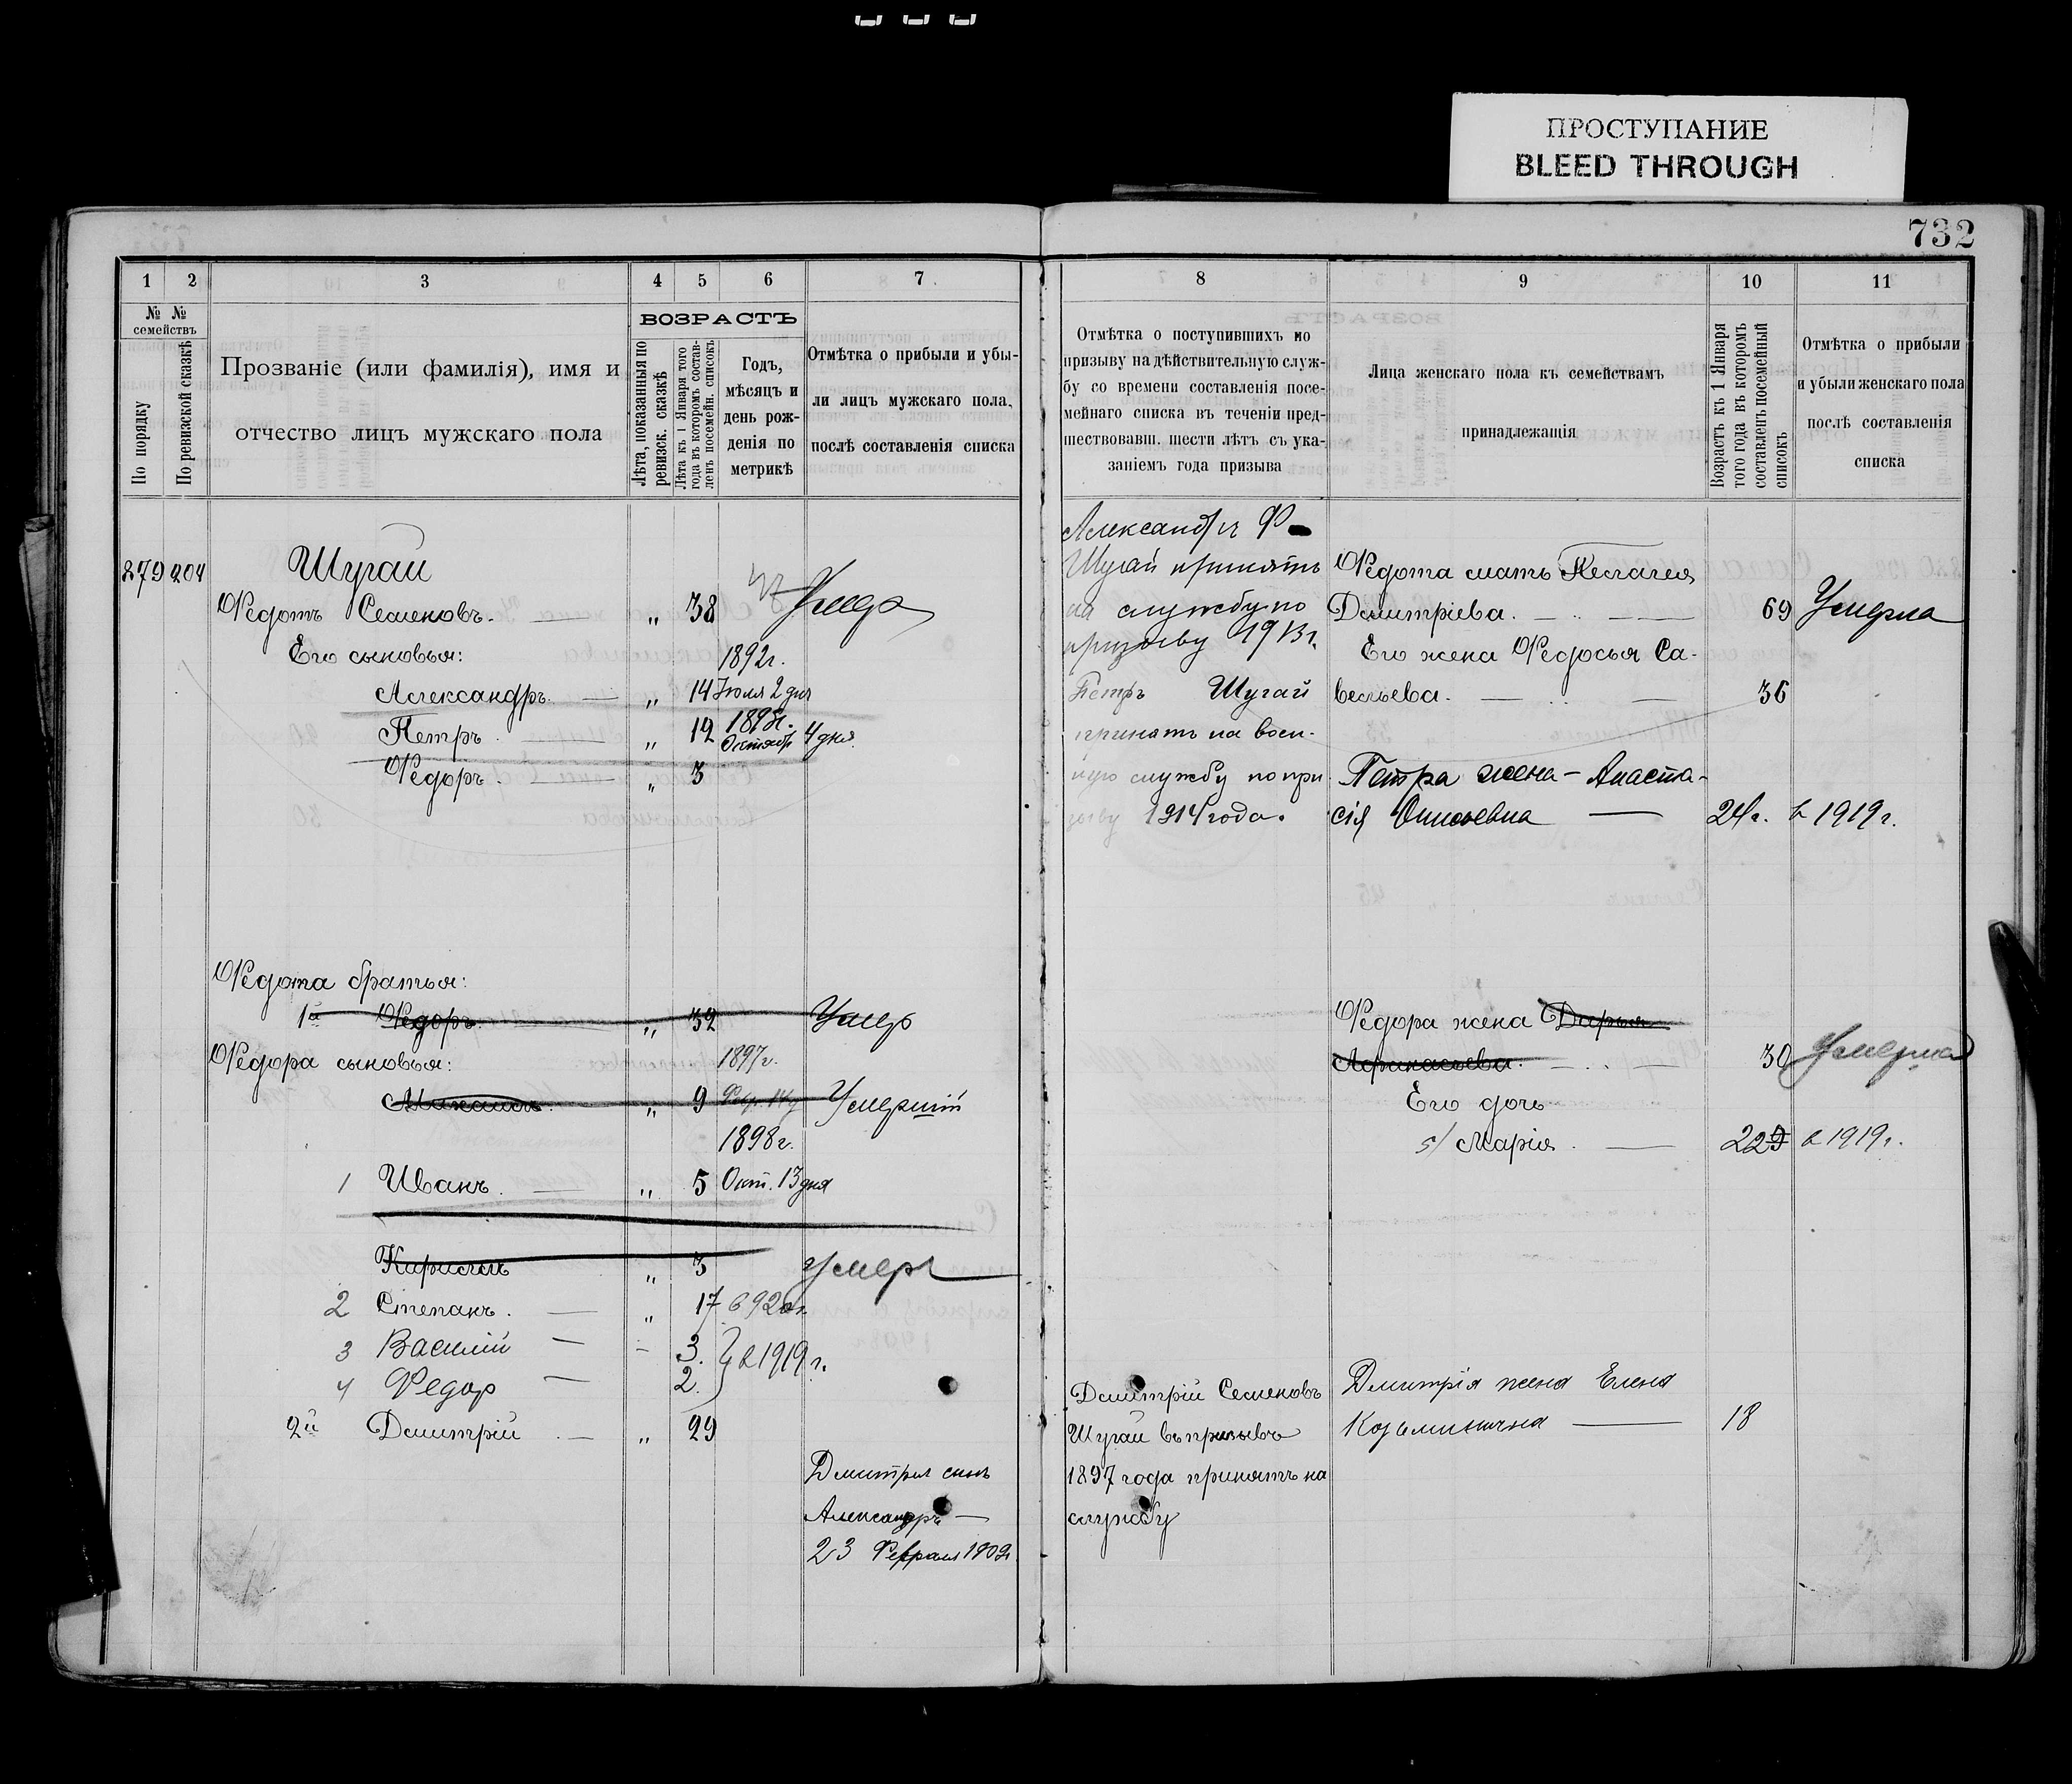 ПРОСТУПАНИЕ
BLEED THROUGH
732
1 2 3 4 5 6 7
№ № семействъ
По порядку
По ревизской сказкѣ
Прозваніе (или фамилія), имя и
отчество лицъ мужскаго пола
ВОЗРАСТЪ
Лѣта, показанныя по
ревизск. сказкѣ
Лѣта къ 1 Января того
года въ которомъ состав-
ленъ посемейн. списокъ
Годъ,
мѣсяцъ и
день рож-
денія по
метрикѣ
Отмѣтка о прибыли и убы-
ли лицъ мужскаго пола,
послѣ составленія списка
279 204 Шугай
Федотъ Семеновъ. — „ 38 Умеръ
Его сыновья: 1892г.
Александръ. — „ 14 Іюля 2 дня
Петръ. — „ 12 1893г. Октябр 4 дня.
Федоръ. — „ 3
Федота братья:
1й Федоръ. „ 32 Умер
Федора сыновья: 1897г.
„ 9 Февр. 14д Умерший
1898г.
1 Иванъ. — „ 5 Окт. 13 дня
Кириллъ „ 3 умеръ
2 Степанъ. — „ 17 в 920г.
3 Василий — - 3. } в 1919 г.
4 Федор — 2.
2й Дмитрій. — „ 29
Дмитрия сынъ
Александръ —
23 Февраля 1909г
8 9 10 11
Отмѣтка о поступившихъ по
призыву на дѣйствительную служ-
бу со времени составленія посе-
мейнаго списка въ теченіи пред-
шествовавш. шести лѣтъ съ ука-
заніемъ года призыва
Лица женскаго пола къ семействамъ
принадлежащія
Возрастъ къ 1 Января
того года въ которомъ
составленъ посемейный
списокъ
Отмѣтка о прибыли
и убыли женскаго пола
послѣ составленія
списка
Александръ Ф
Шугай принятъ
на службу по
призыву 1913г.
Петръ Шугай
принятъ на воен-
ную службу по при
зыву 1914 года.
Федота мать Пелагея
Дмитріева. — 69 Умерла
Его жена Федосья Са-
вельева. — 36
Петра жена - Анаста-
сія Осиповна — 24г. в 1919г.
Федора жена Дарья
Афанасьева. — 30 Умерла
Его дочь
5/ Марія. — 22 9 в 1919г.
Дмитрій Семеновъ
Шугай въ призывъ
1897 года принятъ на
службу
Дмитрія жена Елена
Козьминична — 18